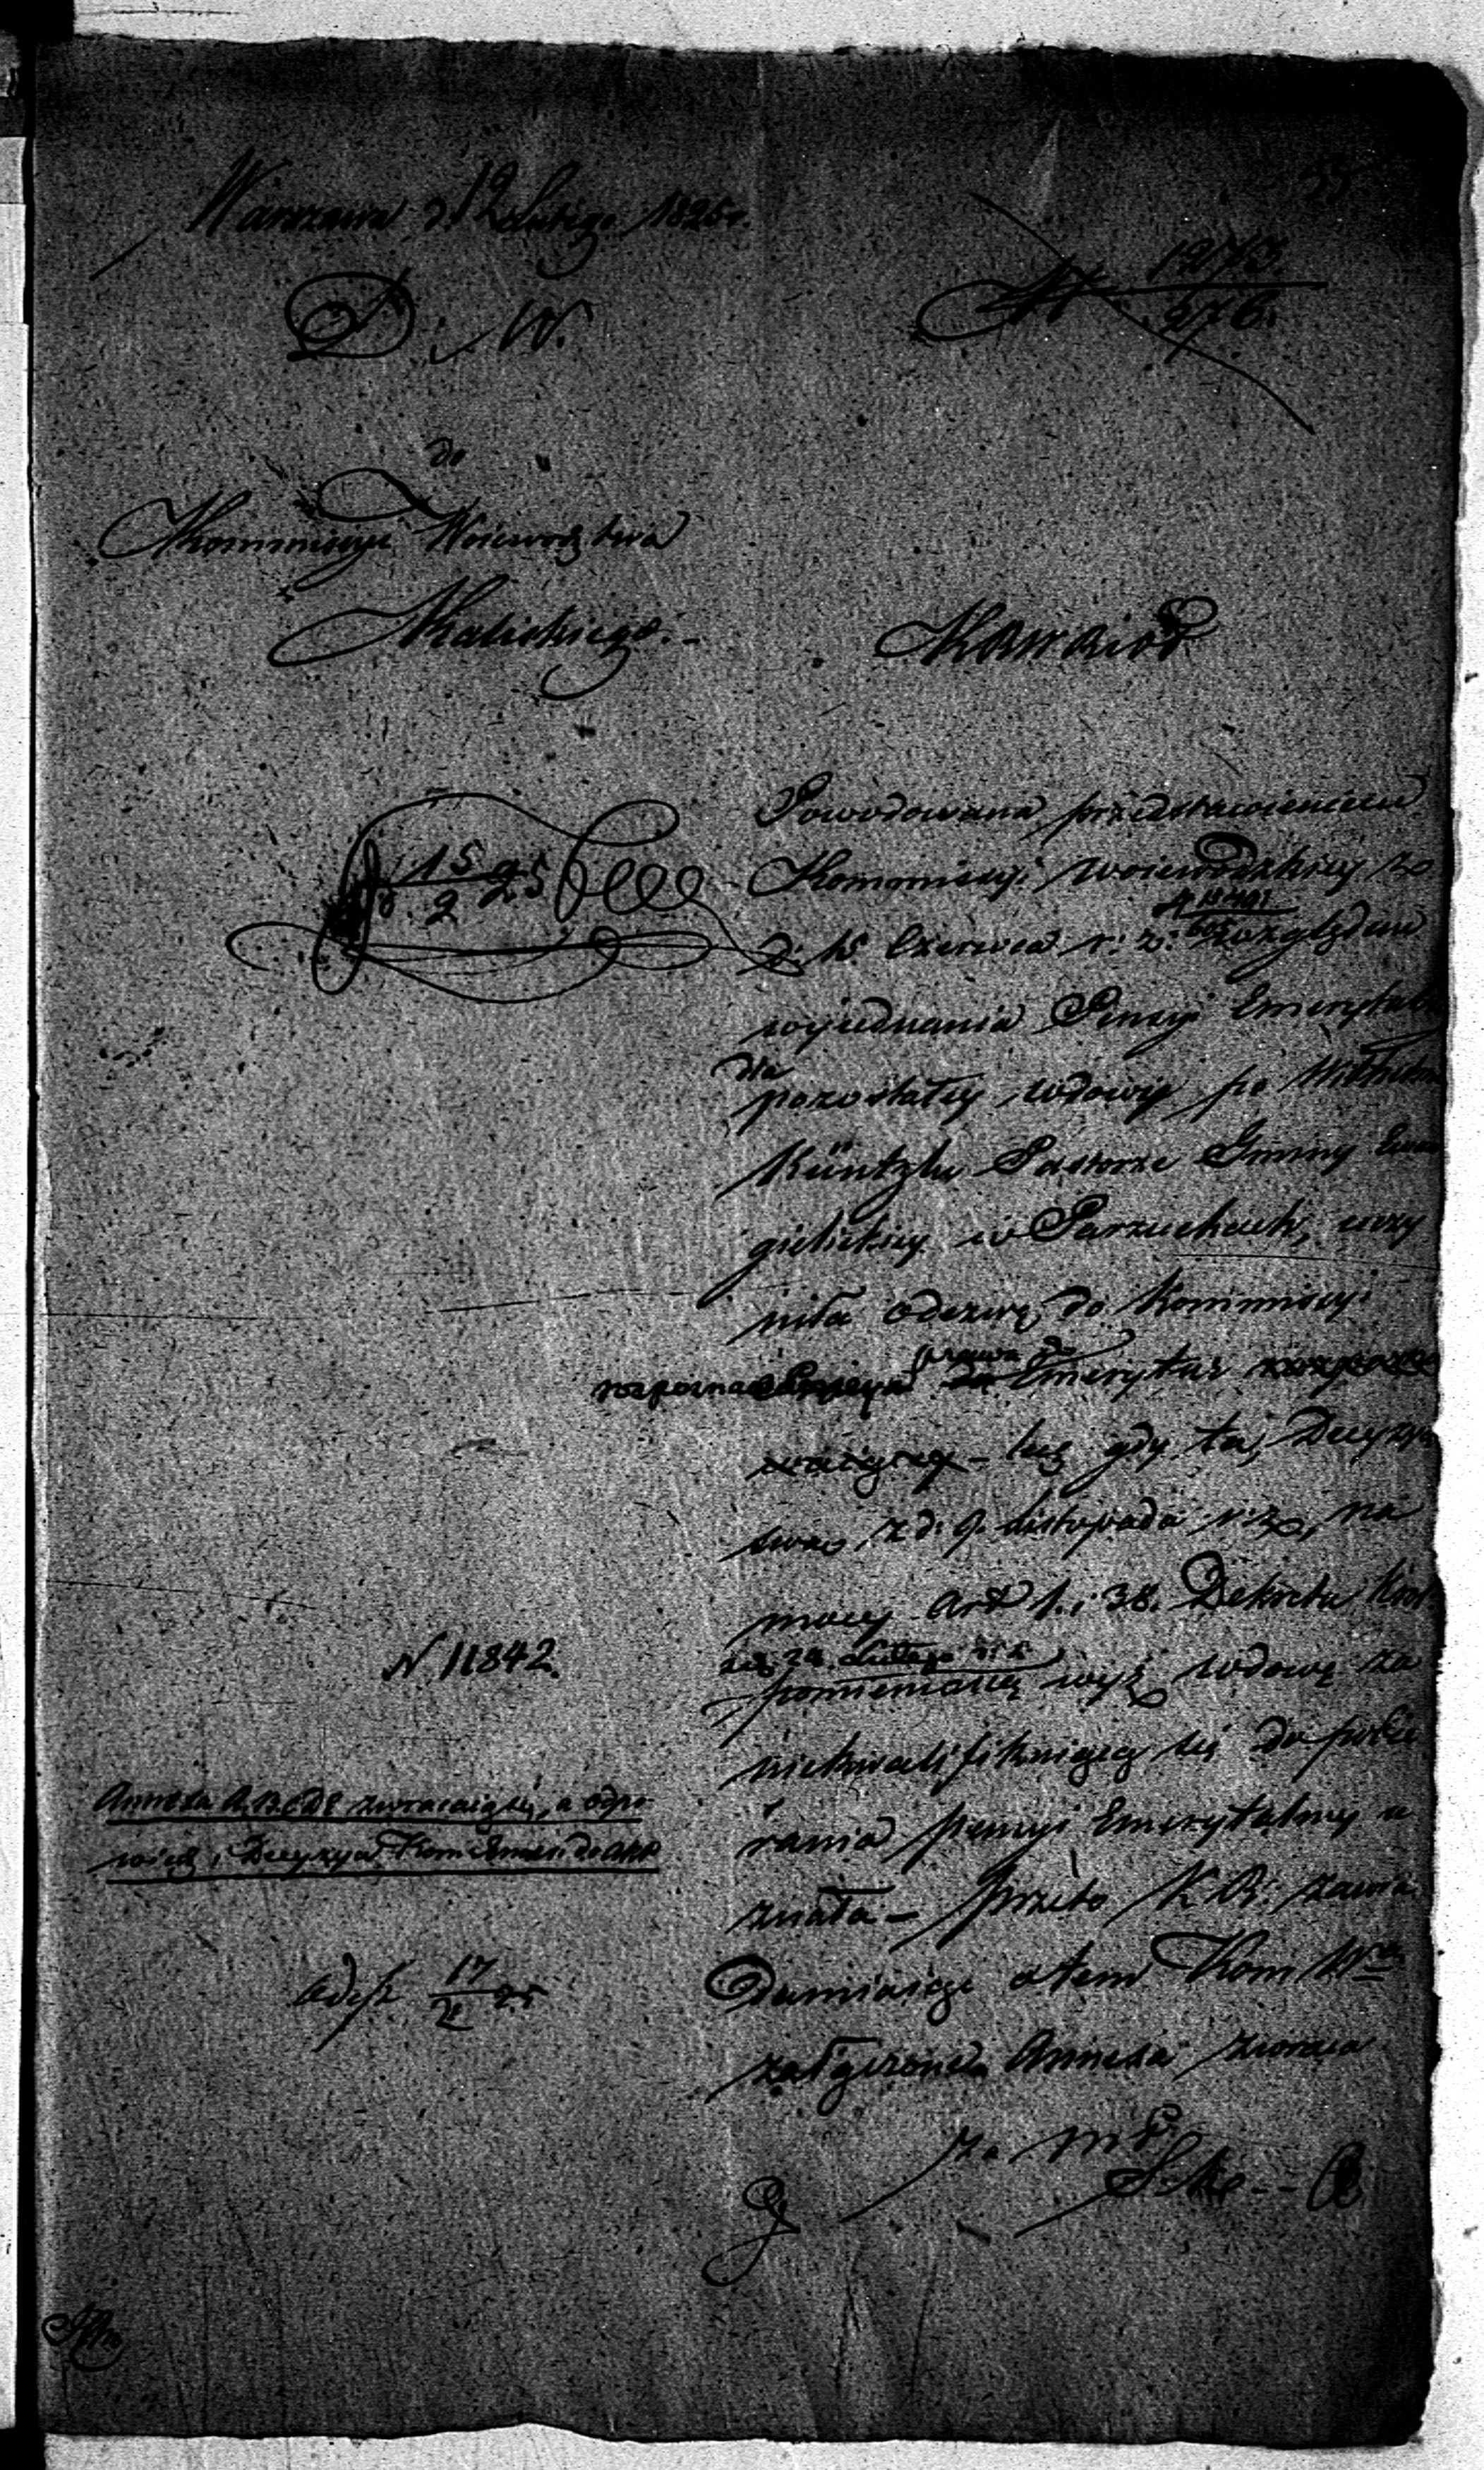 Warszawa d 12 Lutego 1825 r.
N 1273.
276.
D. W.
do
Kommissyi Woiewództwa
Kaliskiego.-
KRWRiOP
15
2 25
Powodowana przedstawieniem
Kommissyi Woiewódzkiey z
d. 15 Czerwca r: z: względem
wyiednania Pensyi Emerytal
dla
pozostałey wdowy po Wilhelm
Küntzlu Pastorze Gminy Ewan
gielickiey w Parzuchach, uczy
niła odezwę do Kommissyi
prawa do
rozpozna Emerytur
- lecz gdy ta, Decyzyą
swą, z d. 9. Listopada r: z:, na
mocy Art 1. i 38. Dekretu Król.
24. Lutego
pomienioną wyż wdowę za
niekwalifikuiącą się do pobie
rania pensyi Emerytalney u
znała - przeto K. R: zawia
damiaiąc o tem Kom Wa
załączone Annexa zwraca
N 11842.
Annexa A.B.C.D.E zwracaią się, a odpo
wiedź i Decyzya Kom Emer: do akt
Odesz 17
2 25
za M P